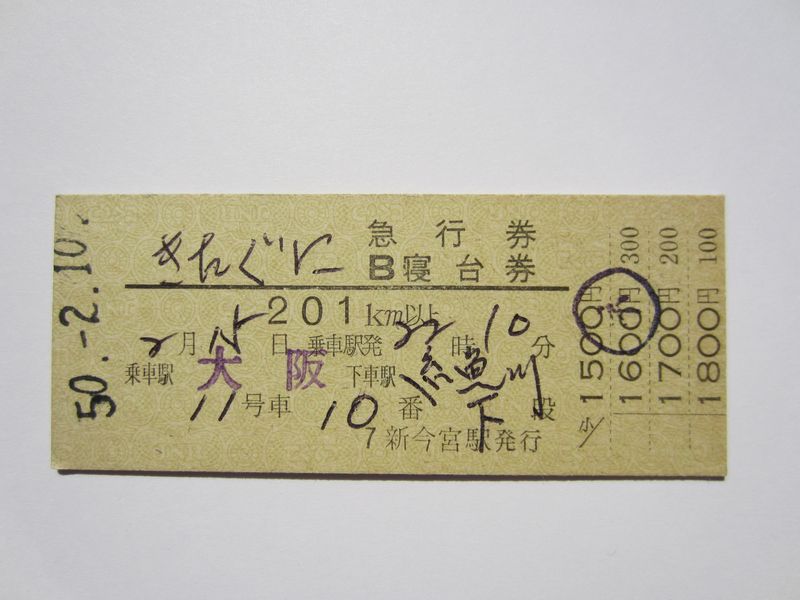 50.-2.10
きたぐに 急行券
B寝台券
201km以上
2月15日 乗車駅発 22時10分
乗車駅 大阪 下車駅 糸魚川
11号車 10番 下段
7 新今宮駅発行
小/ 1500円
1600円 300
1700円 200
1800円 100